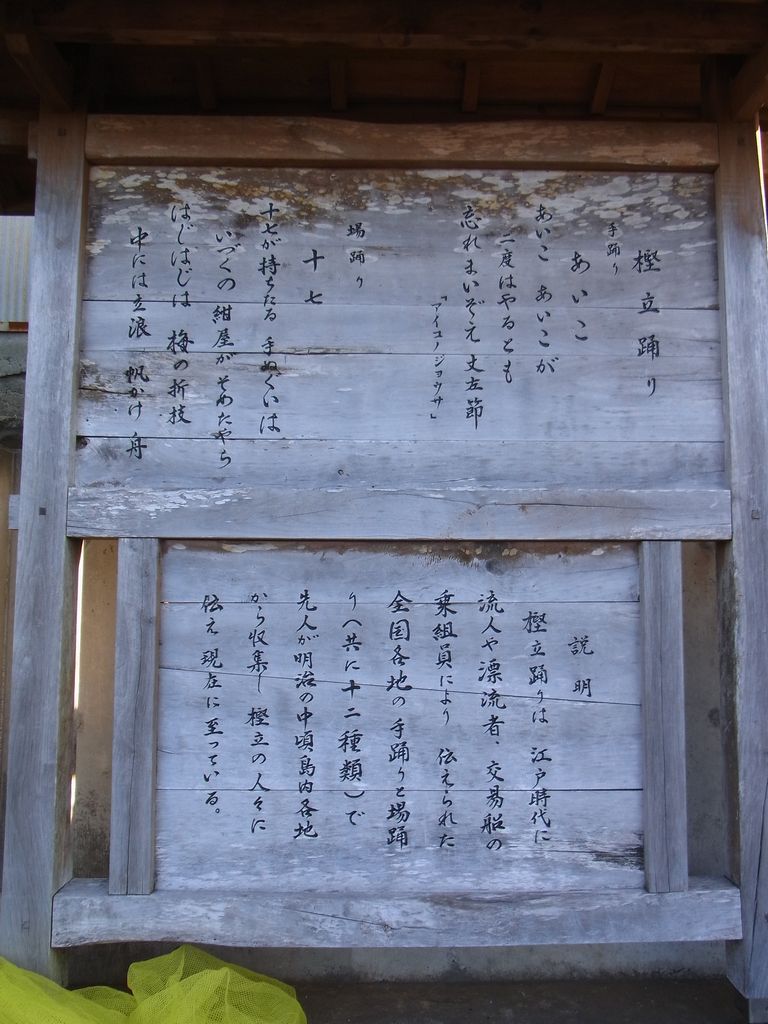 樫立踊り
手踊り
あいこ
あいこ あいこが
二度はやるとも
忘れまいぞえ 丈左節
「アイコノジョウサ」
場踊り
十七
十七が持ちたる 手ぬぐいは
いづくの 紺屋が そめたやら
はじはじは 梅の折技
中には立浪 帆かけ舟
説明
樫立踊りは 江戸時代に
流人や漂流者、交易船の
乗組員により 伝えられた
全国各地の手踊りと場踊
り(共に十二種類)で
先人が明治の中頃島内各地
から収集し 樫立の人々に
伝え 現在に至っている。